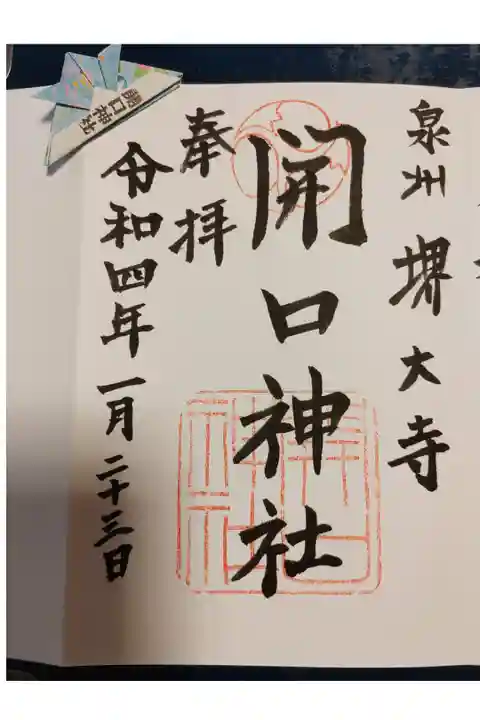 泉州 堺 大寺
開口神社
奉拝
令和四年一月二十三日
開口神社